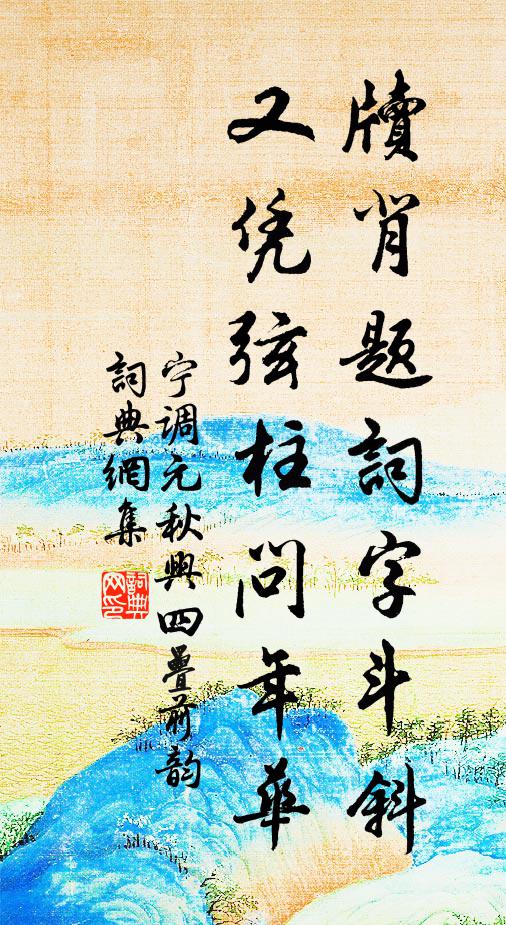 牍背题詞字斗斜
又凭弦柱問年華
宁调元秋興四疊前韵
詞典網集
詞典網印